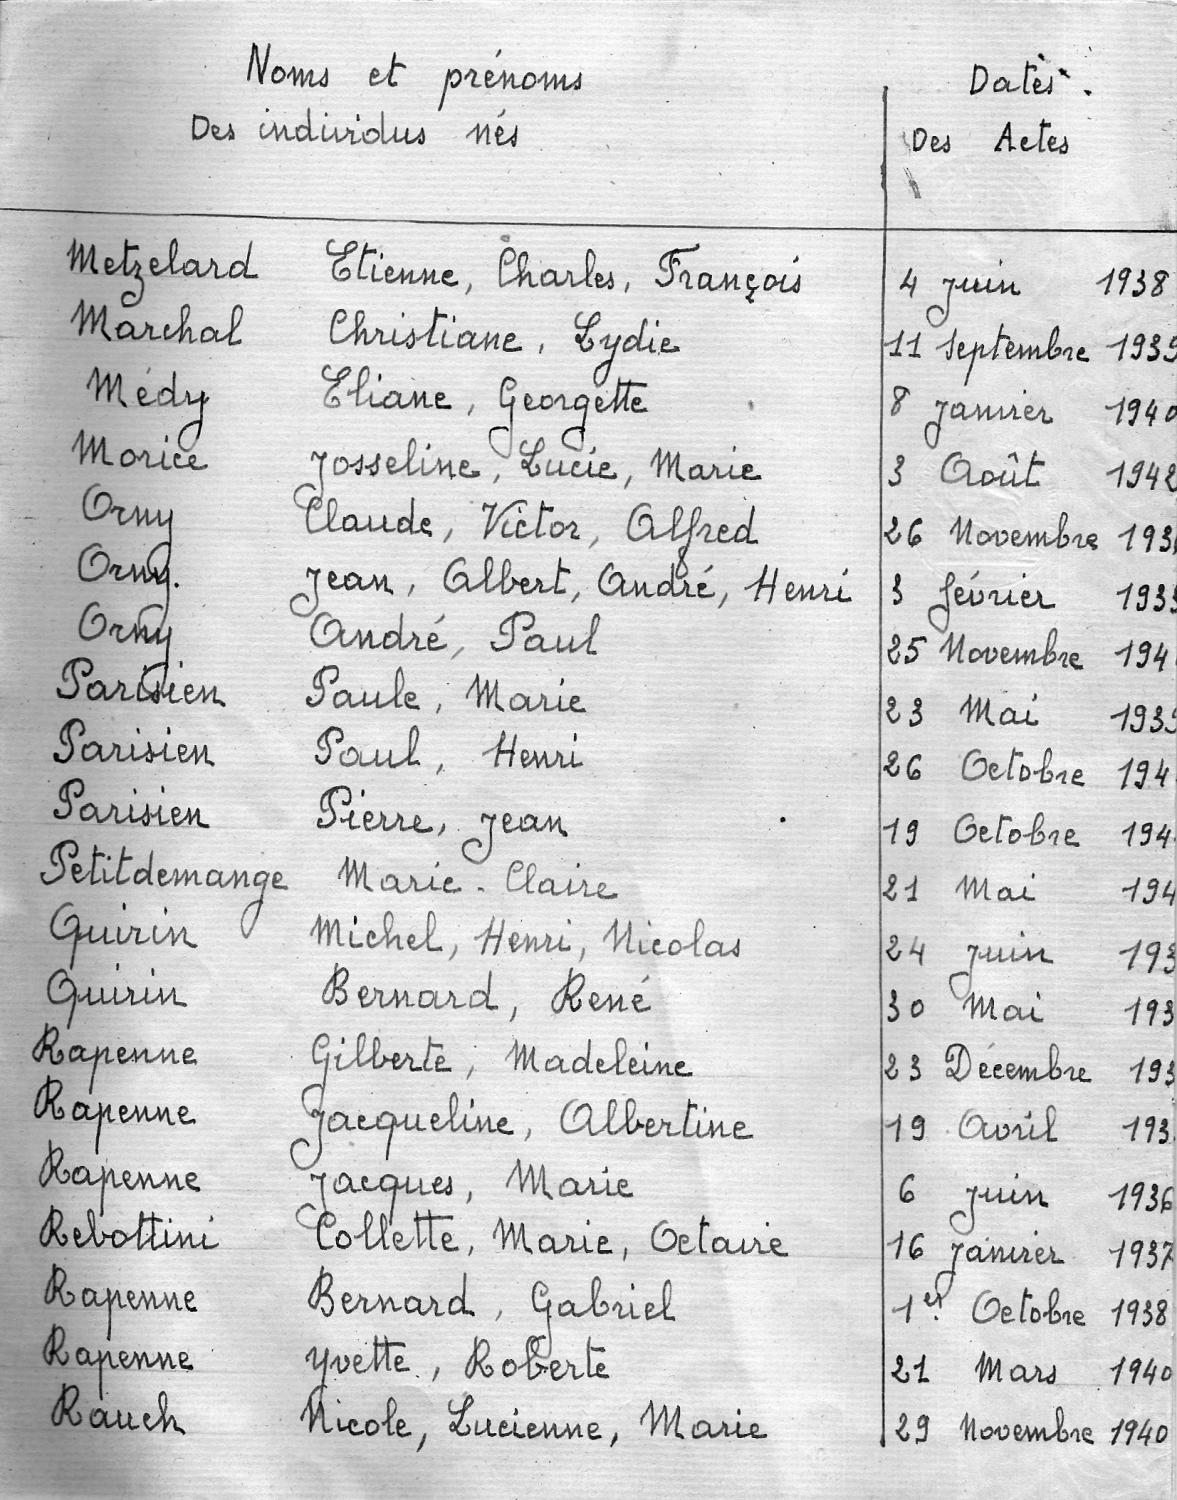 Noms et prénoms Dates.
Des individus nés Des Actes
Metzelard Etienne, Charles, François 4 juin 1938
Marchal Christiane, Lydie 11 Septembre 1939
Médy Eliane, Georgette 8 janvier 1940
Morice Josseline, Lucie, Marie 3 Août 1942
Orny Claude, Victor, Alfred 26 Novembre 193
Orny. Jean, Albert, André, Henri 3 février 193
Orny André, Paul 25 Novembre 194
Parisien Paule, Marie 23 Mai 1939
Parisien Paul, Henri 26 Octobre 194
Parisien Pierre, Jean 19 Octobre 194
Petitdemange Marie-Claire 21 Mai 194
Quirin Michel, Henri, Nicolas 24 juin 193
Quirin Bernard, René 30 Mai 193
Rapenne Gilberte, Madeleine 23 Décembre 193
Rapenne Jacqueline, Albertine 19 Avril 193
Rapenne Jacques, Marie 6 juin 1936
Rebottini Collette, Marie, Octaire 16 janvier 1937
Rapenne Bernard, Gabriel 1er Octobre 1938
Rapenne Yvette, Roberte 21 Mars 1940
Rauch Nicole, Lucienne, Marie 29 Novembre 1940